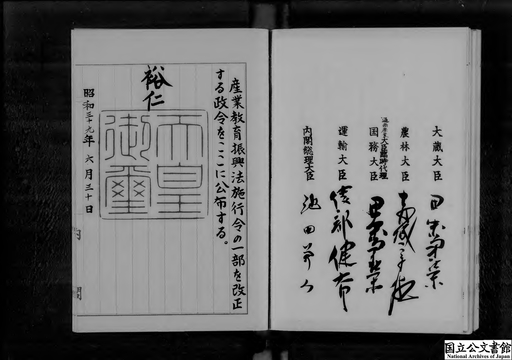 産業教育振興法施行令の一部を改正
する政令をここに公布する。
裕仁
昭和三十九年 六月三十日
天皇
御璽
大蔵大臣 田中角榮
農林大臣 赤城宗徳
通商産業大臣臨時代理
国務大臣 田中角榮
運輸大臣 綾部健太郎
内閣総理大臣 池田勇人
内
閣
国立公文書館
National Archives of Japan